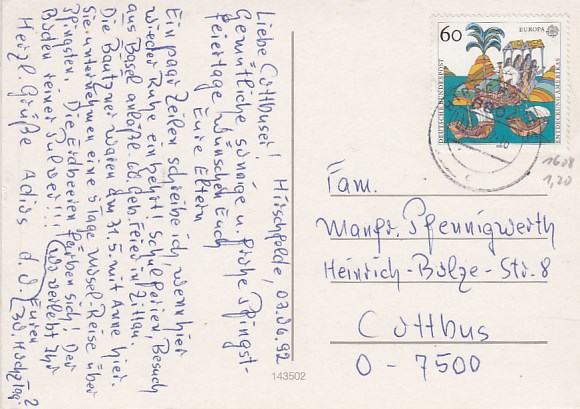 Hirschfelde, 03.06.92
Liebe Cottbuser!
Gemütliche sonnige u. frohe Pfingst-
feiertage wünschen Euch
Eure Eltern
Ein paar Zeilen schreibe ich, wenn hier
wieder Ruhe einkehrt! Schulferien, Besuch
aus Basel anläßl. 60. Geb. Feier in Zittau.
Die Bautzner waren am 31.5. mit Anne hier.
Sie unternehmen eine 5 Tage Mosel-Reise über
Pfingsten. Die Erdbeeren färben sich! Der
Boden reiner Pulver!!! (Wo verlebt Ihr
Euren
30. Hochztg?
Herzl. Grüße Adios d. O.
60
EUROPA
DEUTSCHE BUNDESPOST
ENTDECKUNG AMERIKAS
1608
1,20
Fam.
Manfr. Pfennigwerth
Heinrich-Bolze-Str. 8
Cottbus
O - 7500
143502